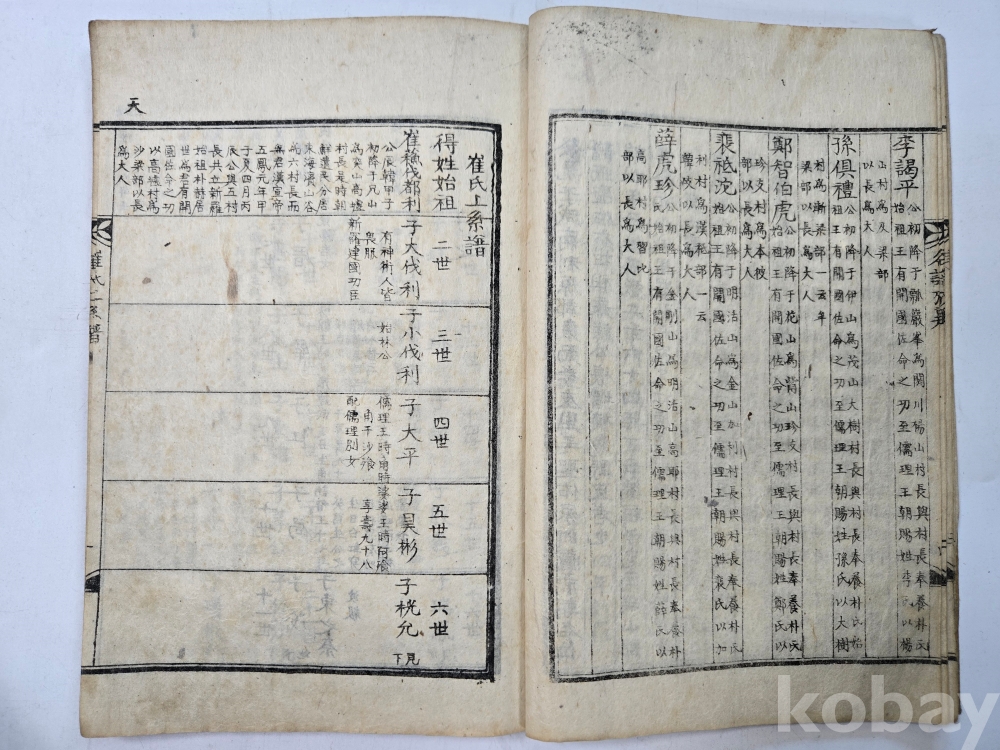 李謁平
公初降于瓢巖峯為關川楊山村長與村長奉養朴氏
始祖王有開國佐命之功至儒理王朝賜姓李氏以楊
山村為及梁部
以長為大人
孫俱禮
公初降于伊山為茂山大樹村長與村長奉養朴氏始
祖王有開國佐命之功至儒理王朝賜姓孫氏以大樹
村為漸梁部一云牟
梁部以長為大人
鄭智伯虎
公初降于花山為觜山珍支村長與村長奉養朴氏
始祖王有開國佐命之功至儒理王朝賜姓鄭氏以
珍支村為本彼
部以長為大人
裴祗沱
公初降于明活山為金山加利村長與村長奉養朴氏
始祖王有開國佐命之功至儒理王朝賜姓裴氏以加
利村為漢祗部一云
韓岐以長為大人
薛虎珍
公初降于金剛山為明活山高耶村長與村長奉養朴
氏始祖王有開國佐命之功至儒理王朝賜姓薛氏以
高耶村為習比
部以長為大人
天
崔氏上系譜
得姓始祖
二世
三世
四世
五世
六世
崔穌伐都利
公辰韓甲子
初降于兄山
為突山高墟
村長是時朝
鮮遺民分居
東海濱山谷
為六村長而
為君漢宣帝
五鳳元年甲
子夏四月丙
辰公與五村
長共立新羅
始祖朴赫居
世為王有開
國佐命之功
以高墟村為
沙梁部以長
為大人
子大伐利
有神術人皆
畏服
新羅建國功臣
子小伐利
始林公
子大平
儒理王時角
干沙飡
配儒理別女
子昊彬
時婆娑王時阿飡
享壽九十八
子桄允
見下
崔氏上系譜
kobay